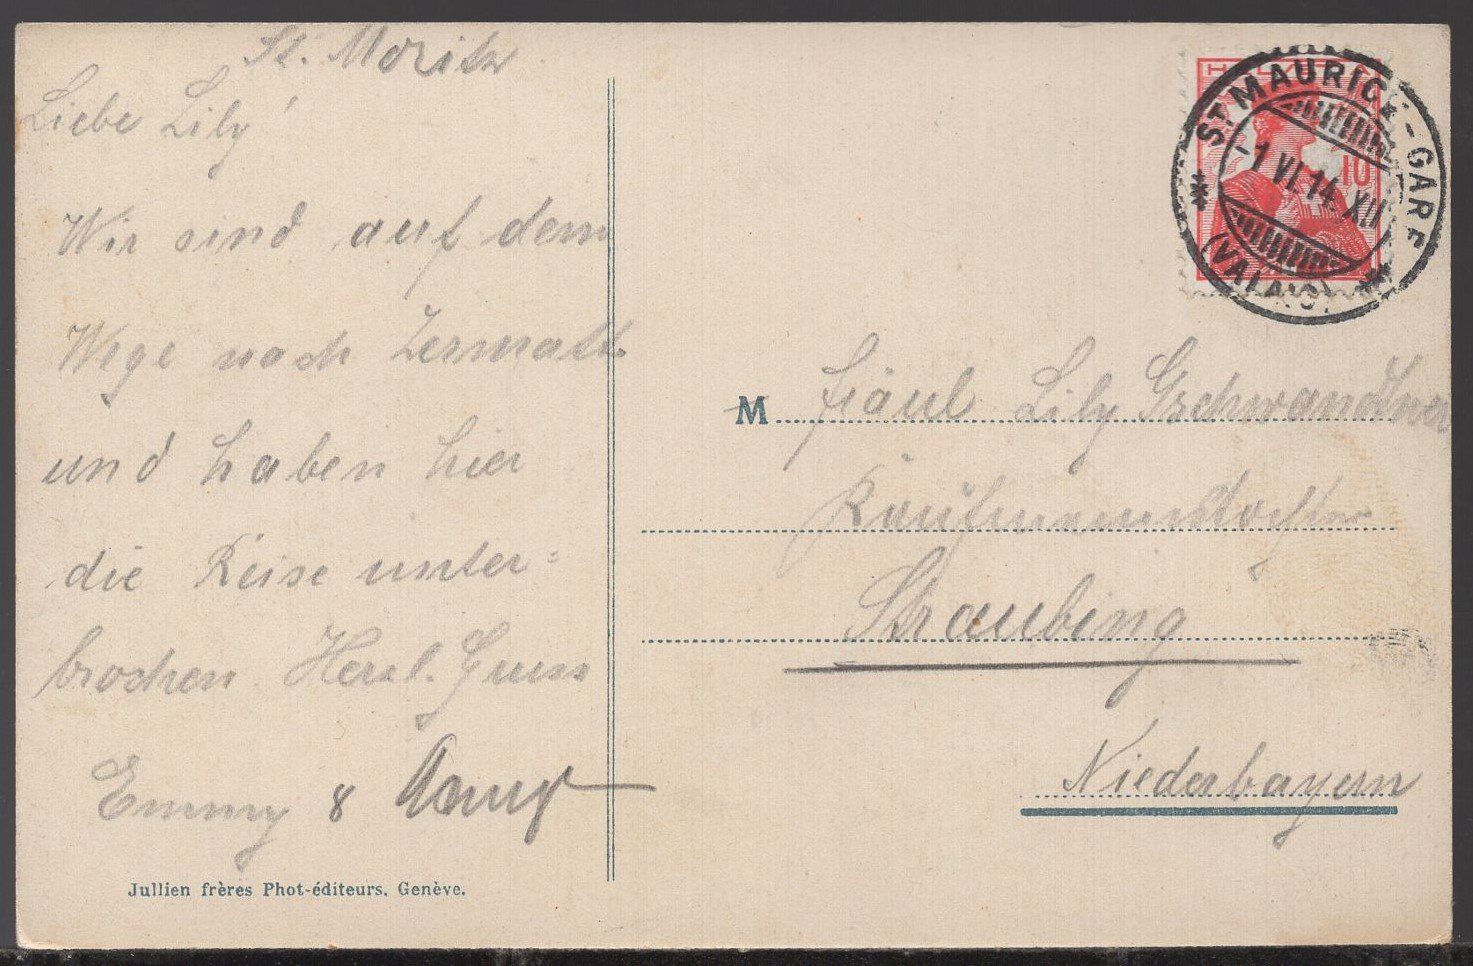 St. Moritz
Liebe Lily!
Wir sind auf dem
Wege nach Zermatt.
und haben hier
die Reise unter=
brochen. Herzl. Gruss
Emmy &
Jullien frères Phot-éditeurs, Genève.
HELVETIA
10
ST MAURICE-GARE
-1 VI.14.XII
(VALAIS)
M Fräul Lily Gschwandtner
Kaufmannstochter
Straubing
Niederbayern